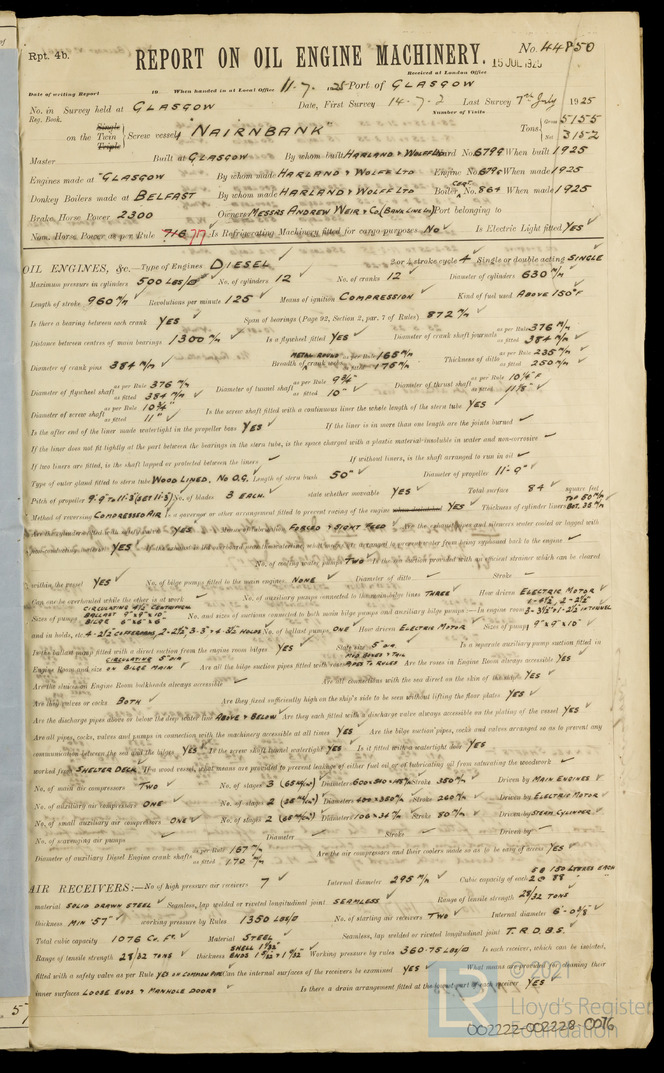 Rpt. 4b.
REPORT ON OIL ENGINE MACHINERY.
No. 44850
15 JUL 1925
Received at London Office
Date of writing Report 19 When handed in at Local Office 11-7-1925 Port of GLASGOW
No. in Survey held at GLASGOW Date, First Survey 14-7-2 Last Survey 7th July 1925
Reg. Book. Number of Visits
on the Single Twin Triple Screw vessel "NAIRNBANK" Tons Gross 5155 Net 3152
Master Built at GLASGOW By whom built HARLAND & WOLFF LTD Yard No. 679G When built 1925
Engines made at GLASGOW By whom made HARLAND & WOLFF LTD Engine No. 679G When made 1925
Donkey Boilers made at BELFAST By whom made HARLAND & WOLFF LTD Boiler No. 864 When made 1925
Brake Horse Power 2300 Owners MESSRS ANDREW WEIR & CO (BANK LINE LTD) Port belonging to
Nom. Horse Power as per Rule 716 Is Refrigerating Machinery fitted for cargo purposes NO Is Electric Light fitted YES
OIL ENGINES, &c.—Type of Engines DIESEL 2 or 4 stroke cycle 4 Single or double acting SINGLE
Maximum pressure in cylinders 500 LBS/□" No. of cylinders 12 No. of cranks 12 Diameter of cylinders 630 m/m
Length of stroke 960 m/m Revolutions per minute 125 Means of ignition COMPRESSION Kind of fuel used ABOVE 150°F
Is there a bearing between each crank YES Span of bearings (Page 92, Section 2, par. 7 of Rules) 872 m/m
Distance between centres of main bearings 1300 m/m Is a flywheel fitted YES Diameter of crank shaft journals as per Rule 376 m/m as fitted 384 m/m
Diameter of crank pins 384 m/m Breadth of crank webs as per Rule 165 m/m as fitted 175 m/m Thickness of ditto as per Rule 235 m/m as fitted 250 m/m
Diameter of flywheel shaft as per Rule 376 m/m as fitted 384 m/m Diameter of tunnel shaft as per Rule 9 3/4" as fitted 10" Diameter of thrust shaft as per Rule as fitted 11 1/8"
Diameter of screw shaft as per Rule 10 3/4" as fitted 11" Is the screw shaft fitted with a continuous liner the whole length of the stern tube YES
Is the after end of the liner made watertight in the propeller boss YES If the liner is in more than one length are the joints burned
If the liner does not fit tightly at the part between the bearings in the stern tube, is the space charged with a plastic material insoluble in water and non-corrosive
If two liners are fitted, is the shaft lapped or protected between the liners If without liners, is the shaft arranged to run in oil
Type of outer gland fitted to stern tube WOOD LINED, NO O.G. Length of stern bush 50" Diameter of propeller 11'-9"
Pitch of propeller 9'-9" TO 11'-3" (SET 11'-3") No. of blades 3 EACH. state whether moveable YES Total surface 84 square feet
Method of reversing COMPRESSED AIR Is a governor or other arrangement fitted to prevent racing of the engine YES Thickness of cylinder liners TOP 50 m/m BOT. 35 m/m
Are the cylinders fitted with safety valves YES Means of lubrication FORCED & SIGHT FEED Are the exhaust pipes and silencers water cooled or lagged with
non-conducting material YES
No. of cooling water pumps TWO Is the sea suction provided with an efficient strainer which can be cleared
within the vessel YES No. of bilge pumps fitted to the main engines NONE Diameter of ditto Stroke
Can one be overhauled while the other is at work No. of auxiliary pumps connected to the main bilge lines THREE How driven ELECTRIC MOTOR
Sizes of pumps BALLAST 9"x9"x10" BILGE 6"x6"x6" No. and sizes of suctions connected to both main bilge pumps and auxiliary bilge pumps:—In engine room
and in holds, etc. No. of ballast pumps ONE How driven ELECTRIC MOTOR Sizes of pumps 9"x9"x10"
Is the ballast pump fitted with a direct suction from the engine room bilges YES State size 5" DIA. Is a separate auxiliary pump suction fitted in
Engine Room and size CIRCULATING 5" DIA. ON BILGE MAIN Are all the bilge suction pipes fitted with roses Are the roses in Engine Room always accessible YES
Are the sluices on Engine Room bulkheads always accessible Are all connections with the sea direct on the skin of the ship YES
Are they valves or cocks BOTH Are they fixed sufficiently high on the ship's side to be seen without lifting the floor plates YES
Are the discharge pipes above or below the deep water line ABOVE & BELOW Are they each fitted with a discharge valve always accessible on the plating of the vessel YES
Are all pipes, cocks, valves and pumps in connection with the machinery accessible at all times YES Are the bilge suction pipes, cocks and valves arranged so as to prevent any
communication between the sea and the bilges YES Is the screw shaft tunnel watertight YES Is it fitted with a watertight door YES
worked from SHELTER DECK If a wood vessel, what means are provided to prevent leakage of either fuel oil or of lubricating oil from saturating the woodwork
No. of main air compressors TWO No. of stages 3 Diameters Stroke 350 m/m Driven by MAIN ENGINES
No. of auxiliary air compressors ONE No. of stages 2 Diameters Stroke 260 m/m Driven by ELECTRIC MOTOR
No. of small auxiliary air compressors ONE No. of stages 2 Diameters Stroke 80 m/m Driven by STEAM CYLINDER
No. of scavenging air pumps Diameter Stroke Driven by
Diameter of auxiliary Diesel Engine crank shafts as per Rule 167 m/m as fitted 170 m/m Are the air compressors and their coolers made so as to be easy of access YES
AIR RECEIVERS:—No. of high pressure air receivers 7 Internal diameter 295 m/m Cubic capacity of each 5 @ 150 LITRES EACH 2 @ 88
material SOLID DRAWN STEEL Seamless, lap welded or riveted longitudinal joint SEAMLESS Range of tensile strength 28/32 TONS
thickness MIN .57" working pressure by Rules 1350 LBS/□" No. of starting air receivers TWO Internal diameter
Total cubic capacity 1076 Cu. Ft. Material STEEL Seamless, lap welded or riveted longitudinal joint T.R.D.B.S.
Range of tensile strength 28/32 TONS thickness SHELL ENDS Working pressure by rules 360.75 LBS/□" Is each receiver, which can be isolated,
fitted with a safety valve as per Rule YES ON COMMON PIPE Can the internal surfaces of the receivers be examined YES What means are provided for cleaning their
inner surfaces LOOSE ENDS & MANHOLE DOORS Is there a drain arrangement fitted at the lowest part of each receiver YES
LR
© 2021
Lloyd's Register
Foundation
002222-002228-0076